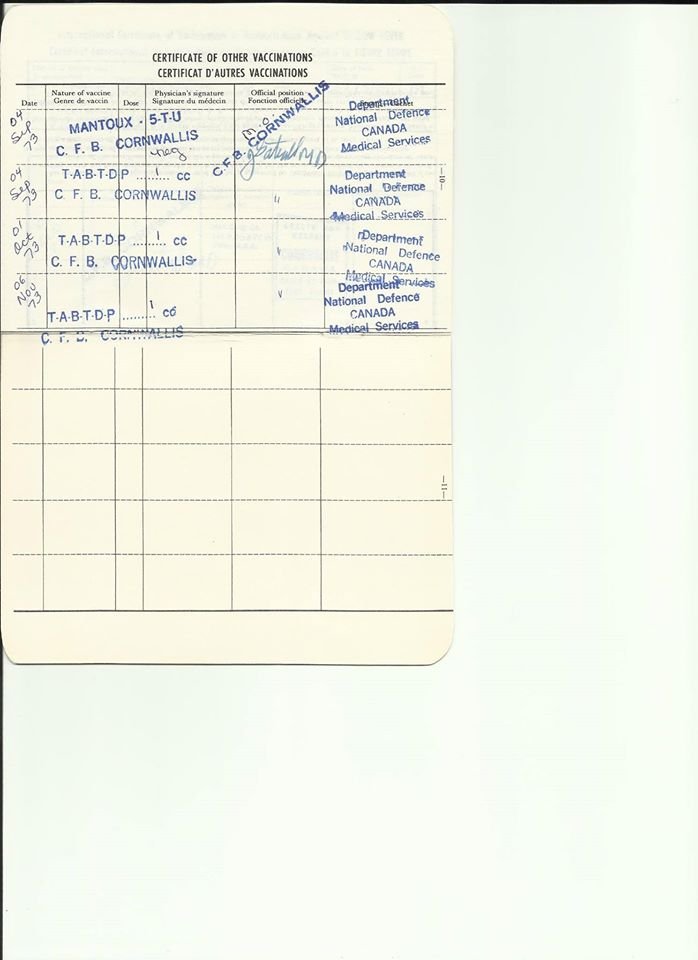 CERTIFICATE OF OTHER VACCINATIONS
CERTIFICAT D'AUTRES VACCINATIONS
Date
Nature of vaccine
Genre de vaccin
Dose
Physician's signature
Signature du médecin
Official position
Fonction officielle
04
Sep
73
MANTOUX · 5-T-U
C. F. B. CORNWALLIS
neg.
M.O.
C.F.B. CORNWALLIS
Department
National Defence
CANADA
Medical Services
04
Sep
73
T-A-B-T-D P ........1 cc
C. F. B. CORNWALLIS
"
Department
National Defence
CANADA
Medical Services
01
Oct
73
T-A-B-T-D-P ........1 cc
C. F. B. CORNWALLIS
Department
National Defence
CANADA
Medical Services
06
Nov
73
T-A-B-T-D-P ........1 cc
C. F. B. CORNWALLIS
Department
National Defence
CANADA
Medical Services
—10—
—11—